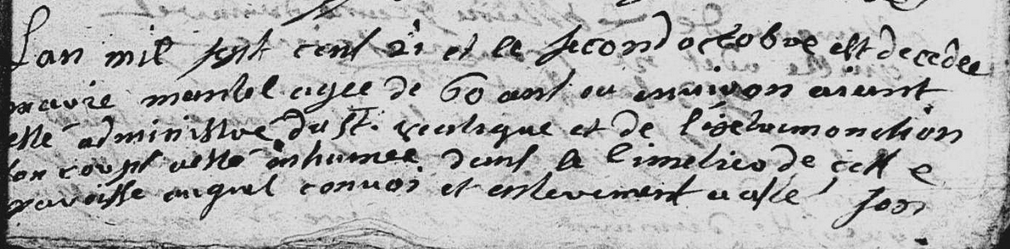 Lan mil sept cent 21 et le second octobre est decedee
marie mantel agee de 60 ans ou environ aiant
este administré du St. viatique et de lextremonction
son corps a esté inhumee dans le cimetiere de cette
paroisse auquel convoi et enlevement a asse son